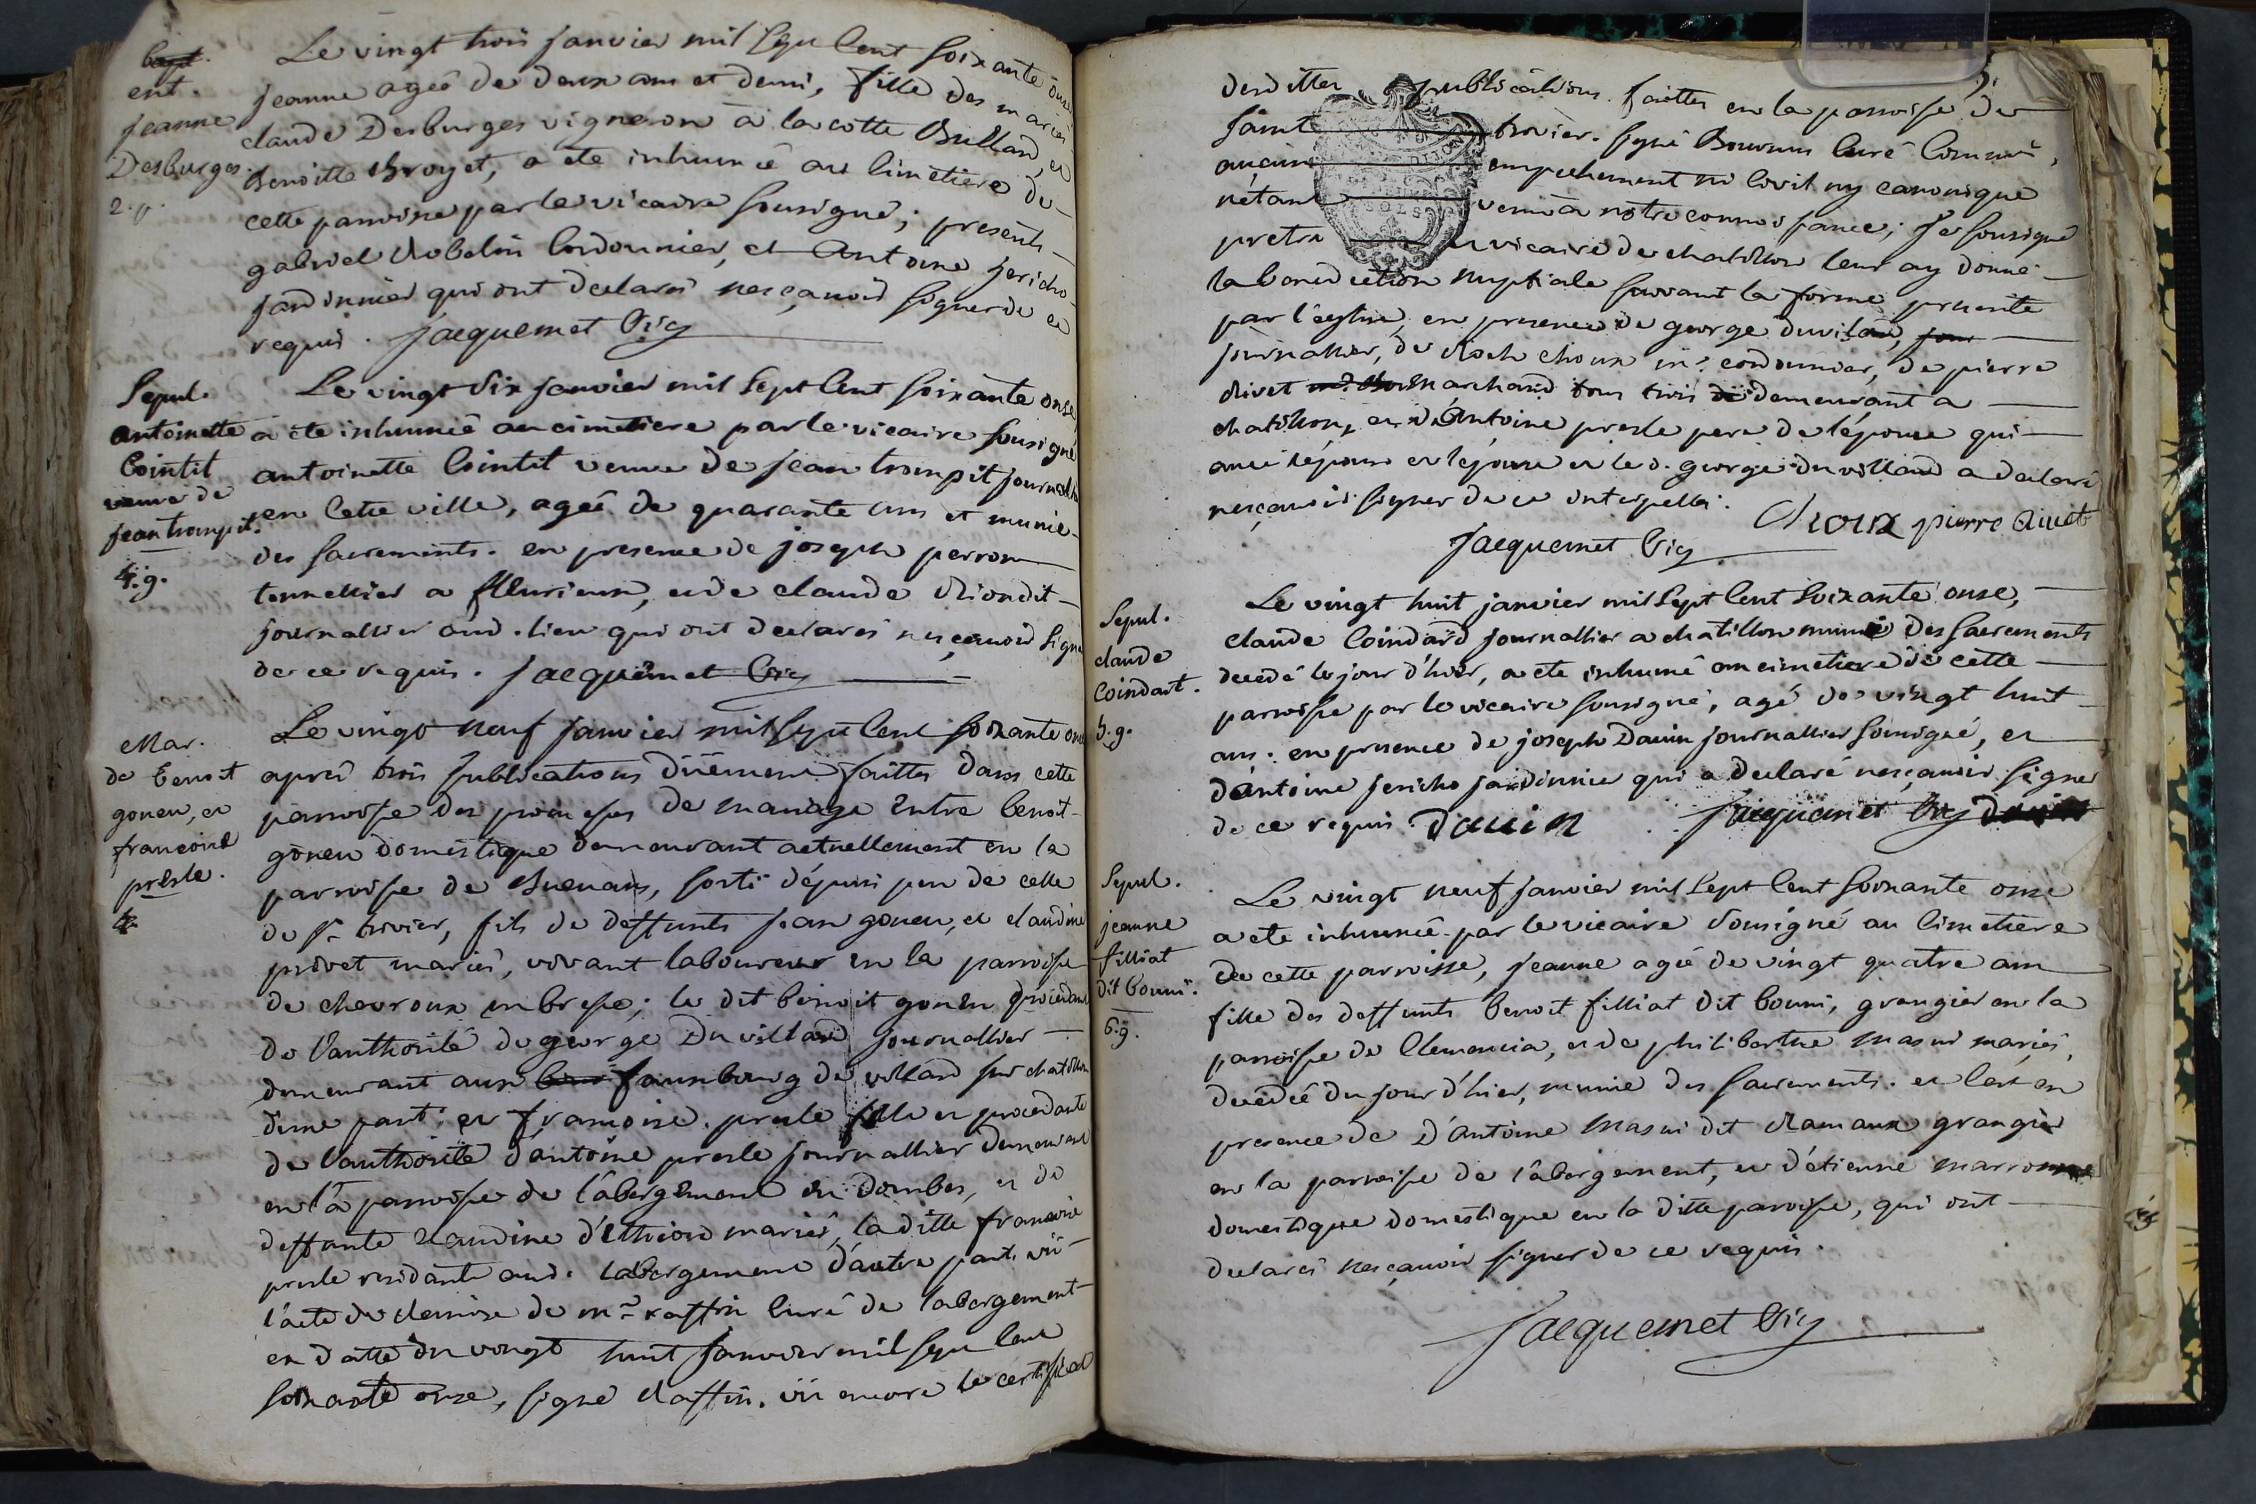 bapt.
ent.
jeanne
Desburges
2. p.
Le vingt trois janvier mil sept cent soixante onze
jeanne agée de deux ans et demi, fille des mariés
claude Desburges vigneron à la cotte Bulland, et
benoitte broyet, a ete inhumée au cimetiere de
cette parroisse par le vicaire sousigné; presents
gabriel Robelin cordonnier, et Antoine jericho
jardinnier qui ont declarés nesçavoir signer de ce
requis. jacquemet Vic
Sepul.
antoinette
Cointit
veuve de
jean trompit.
4. g.
Le vingt six janvier mil sept cent soixante onze
a ete inhumée au cimetiere par le vicaire sousigné
antoinette Cointit veuve de jean trompit journallier
en cette ville, agée de quarante ans et munie
des sacrements. en presence de joseph perron
tonnellier a fleurieux, et de claude Riondit
journallier aud. lieu qui ont declarés nesçavoir signer
de ce requis. jacquemet Vic
Mar.
de benoit
goneu, et
francoise
presle.
4.
Le vingt neuf janvier mil sept cent soixante onze
apres trois publications düement faittes dans cette
parroisse des promesses de mariage entre benoit
goneu domestique demeurant actuellement en la
parroisse de , sorti dépuis peu de celle
de st trivier, fils de deffunts jean goneu, et claudine
privet mariés, vivant laboureur en la parroisse
de chevroux en bresse; le dit benoit goneu procedant
de l'authorité de george Duvilland journallier
demeurant aux faunbourg de villard sur chatillon
d'une part; et francoise presle fille et procedante
de l'authorité d'antoine presle journallier demeurant
en la parroisse de l'abergement en dombes, et de
deffunte claudine d'Ethion mariés, la ditte francoise
presle residante aud. labergement d'autre part. vü
l'acte de demise de mre raffin curé de labergement
en datte du vingt huit janvier mil sept cent
soixante onze, signé Raffin. vü encore le certificat
5.
desdittes publications faittes en la parroisse de
saint trivier. signé Bouvran curé commis,
aucun empechement ni civil ny canonique
n'étant venu à notre connoissance; je sousigné
pretre et vicaire de chatillon leur ay donné
la benediction nuptiale suivant la forme prescrite
par l'eglise, en presence de george duvilland,
journallier, de Roch choux me cordonnier, de pierre
Rivet marchand tous trois demeurant a
chatillon, et d'Antoine presle pere de lépouse qui
avec lépoux et lépouse et le d. george duvilland a declaré
nesçavoir signer de ce interpellés. Choux pierre Rivet
jacquemet Vic
Sepul.
claude
Coindart.
5. g.
Le vingt huit janvier mil sept cent soixante onse,
claude Coindard journallier a chatillon muni des sacrements
decedé le jour d'hier, a ete inhumé au cimetiere de cette
parroisse par le vicaire sousigné, agé de vingt huit
ans. en presence de joseph Dauin journallier sousigné, et
d'Antoine jericho jardinnier qui a declaré nesçavoir signer
de ce requis Dauin jacquemet Vic
Sepul.
jeanne
filliat
dit bouni.
6. g.
Le vingt neuf janvier mil sept cent soixante onse
a ete inhumée par le vicaire sousigné au cimetiere
de cette parroisse, jeanne agée de vingt quatre ans
fille des deffunts benoit filliat dit bouni, grangier en la
parroisse de Clemencia, et de philiberthe masui mariés,
decedée du jour d'hier, munie des sacrements. et c'est en
presence de D'antoine masui dit Ramaux grangier
en la parroisse de l'abergement, et d'étienne marronne
domestique domestique en la ditte paroisse, qui ont
declarés nesçavoir signer de ce requis.
jacquemet Vic